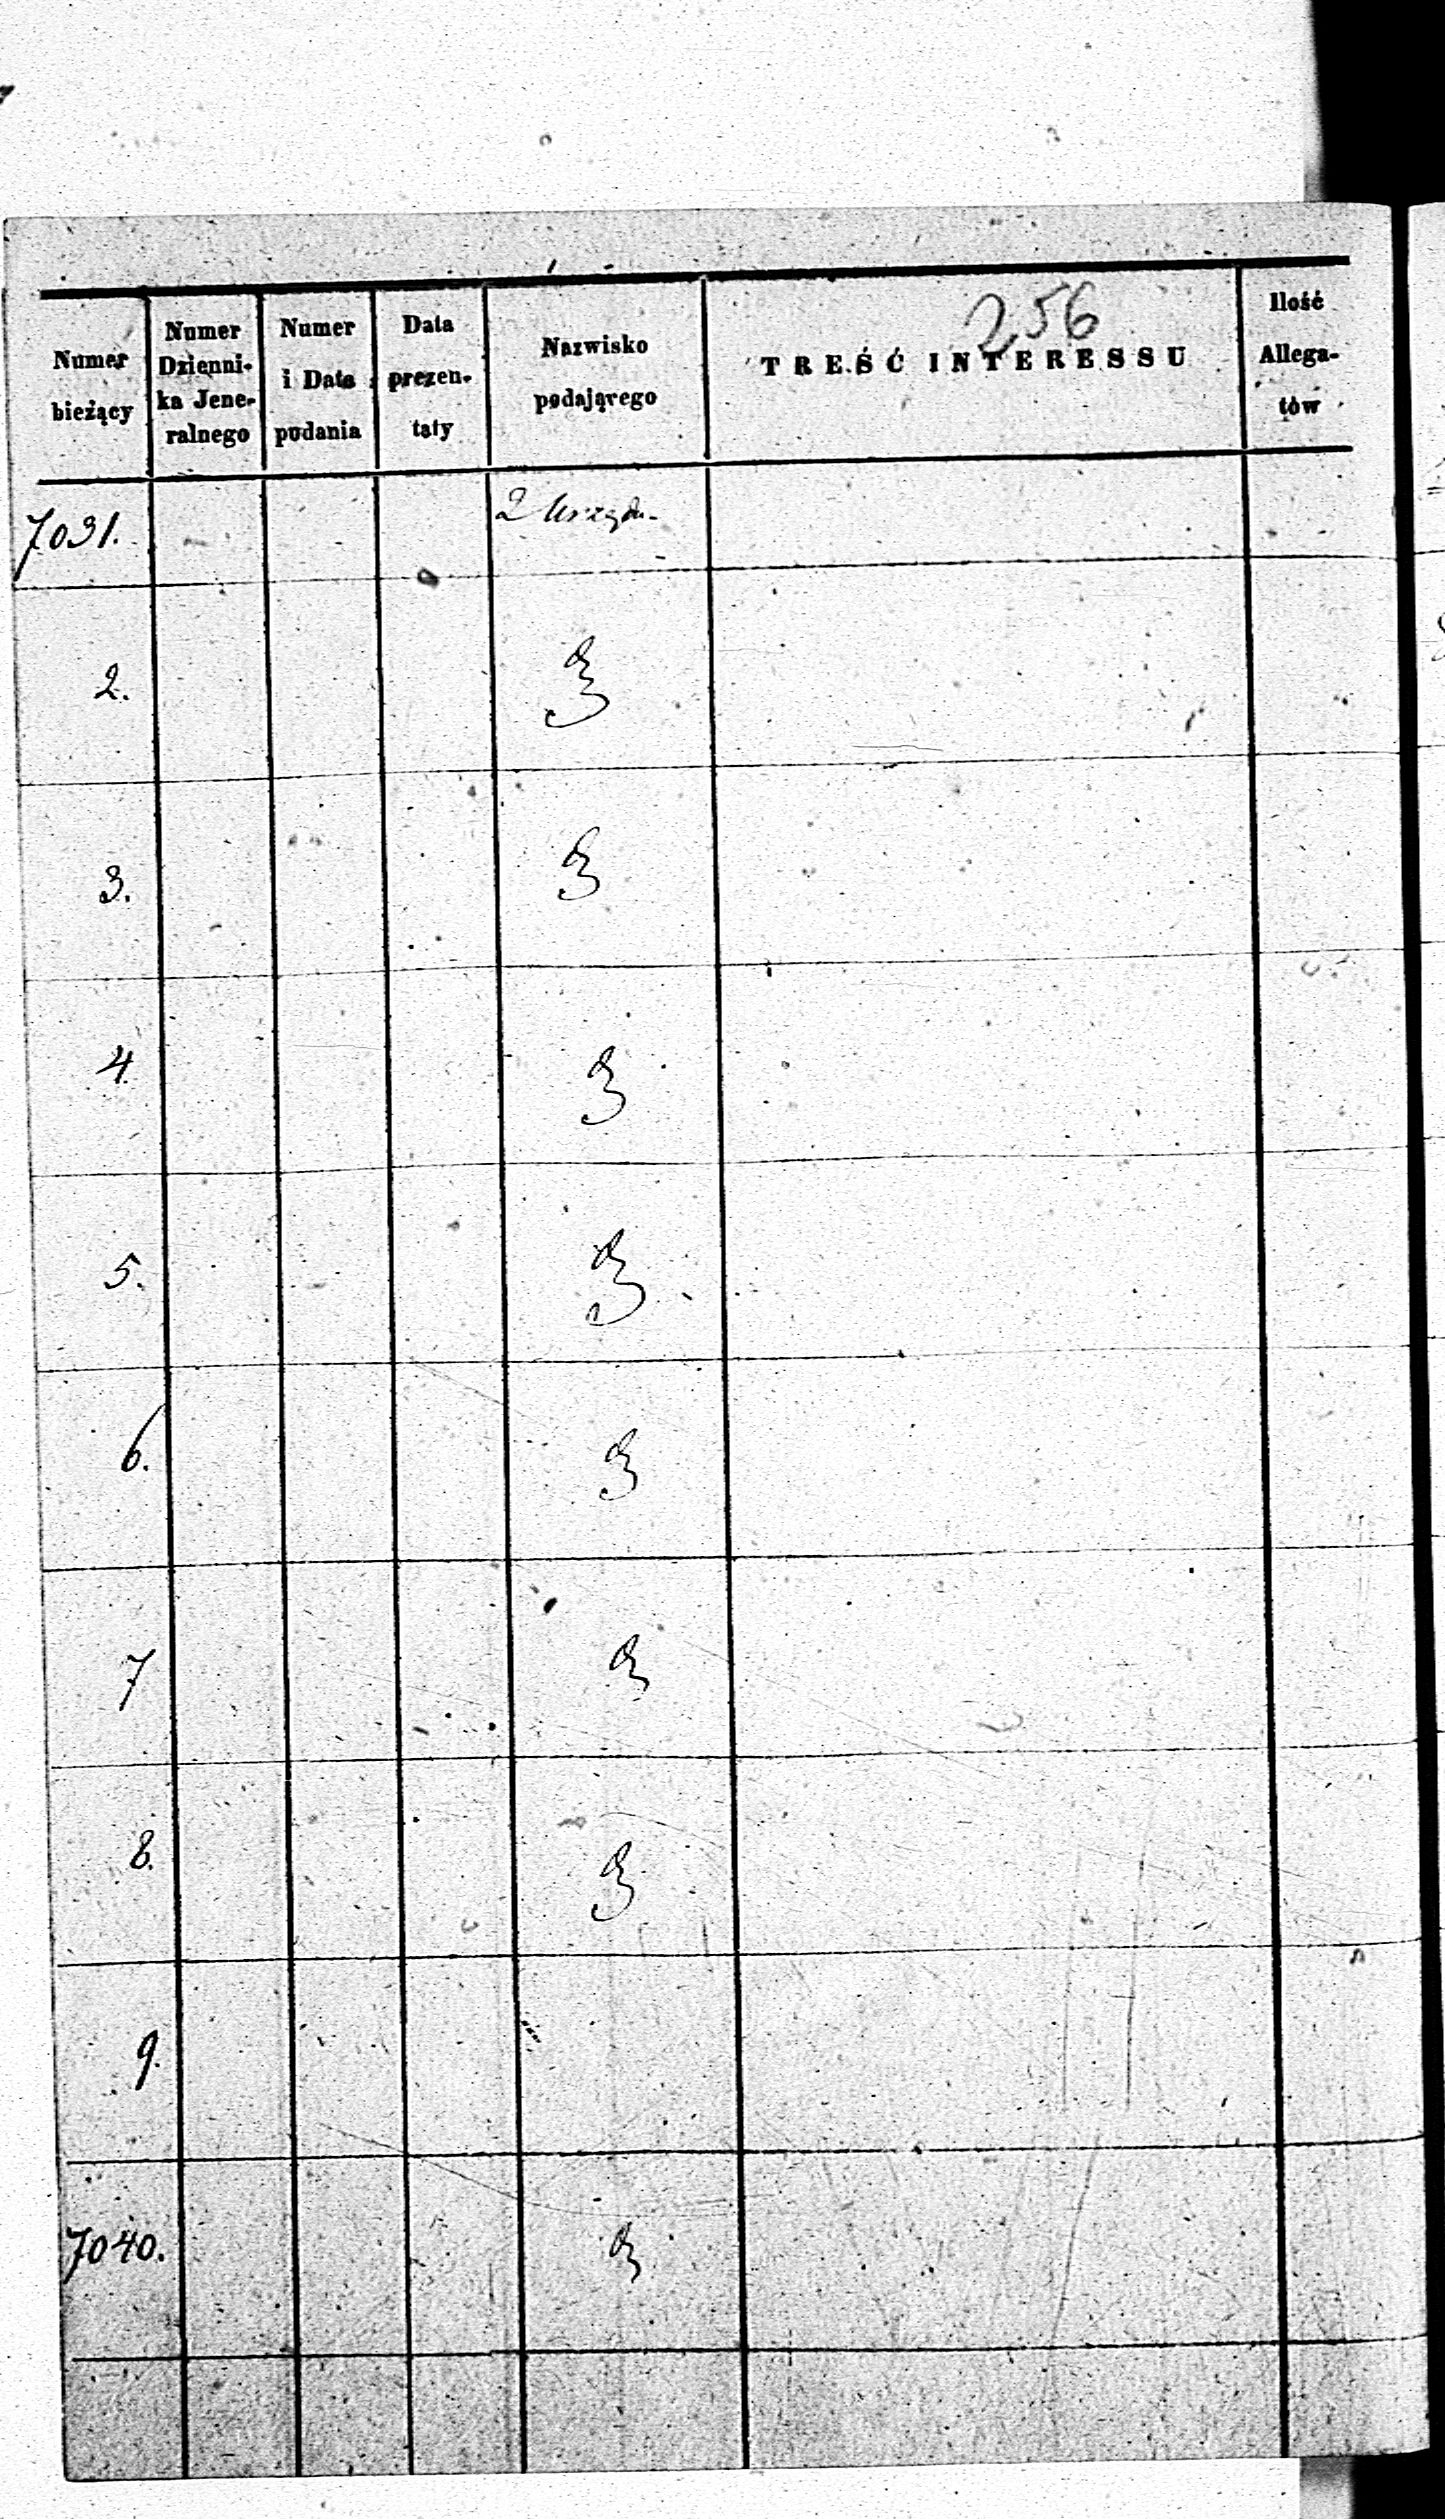 256
Numer bieżący
Numer Dzienni- ka Jene- ralnego
Numer i Data podania
Data prezen- taty
Nazwisko podającego
TREŚĆ INTERESSU
Ilość Allega- tów
7031. Z Urzędu
2.
3.
4.
5.
6.
7
8.
9.
7040.